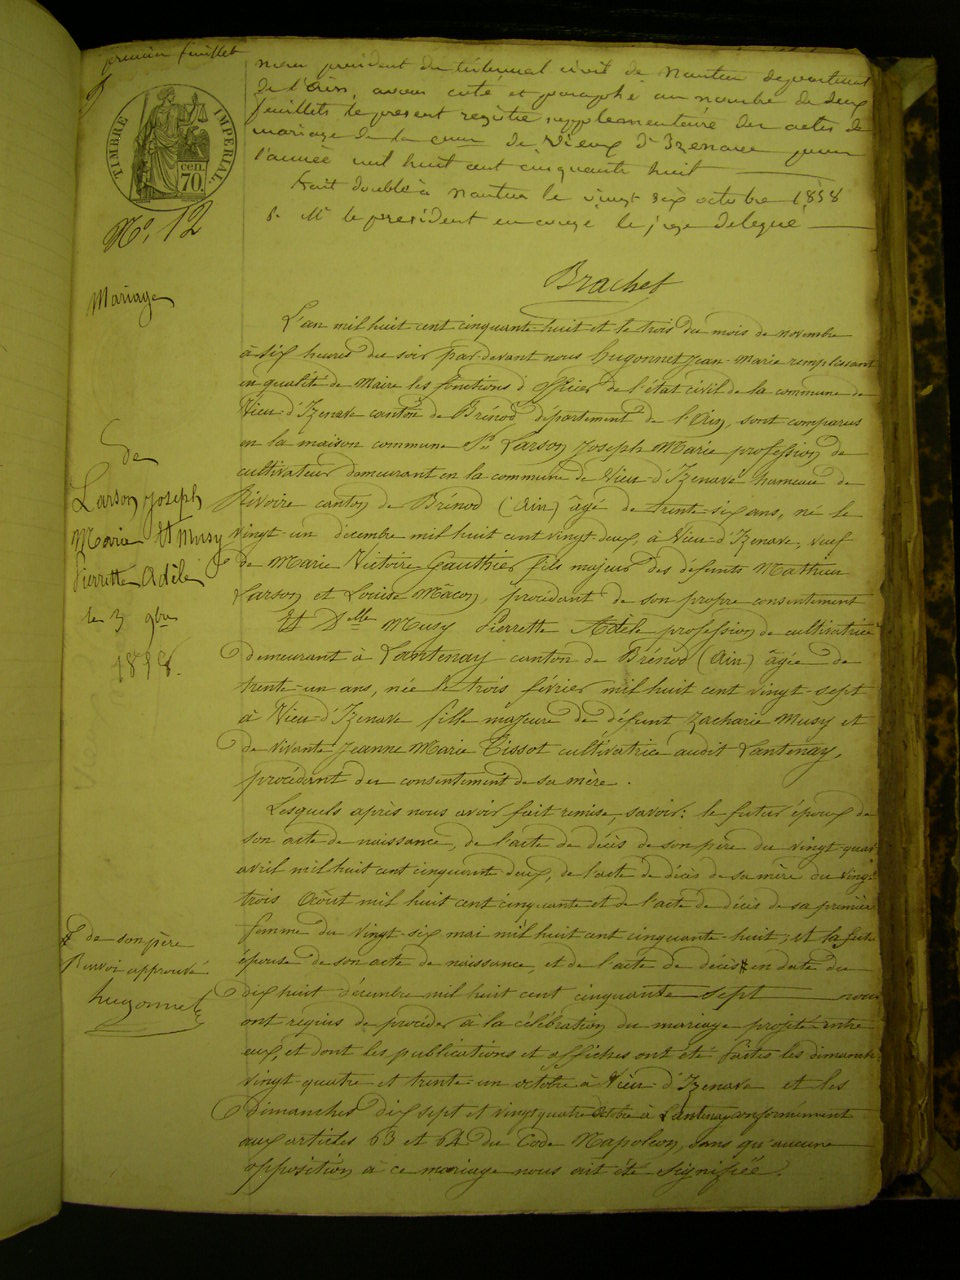 premier feuillet
TIMBRE IMPERIAL
cen.
70.
nous president du tribunal civil de Nantua departement
de l'Ain, avons coté et paraphé au nombre de deux
feuillets le present registre supplementaire des actes de
mariage de la com de Vieux d'Izenave pour
l'année mil huit cent cinquante huit
fait double à Nantua le vingt six octobre 1858
p. Mr le president en congé le juge délégué
Brachet
No. 12
Mariage
de
Larson Joseph
Marie Et Musy
Pierrette Adèle
le 3 9bre
1858.
L'an mil huit cent cinquante-huit et le trois du mois de novembre
à six heures du soir par-devant nous Hugonnet Jean-Marie remplissant
en qualité de Maire les fonctions d'officier de l'état civil de la commune de
Vieu-d'Izenave canton de Brénod département de l'Ain, sont comparus
en la maison commune Sr. Larson Joseph Marie profession de
cultivateur demeurant en la commune de Vieu-d'Izenave hameau de
Rivoire canton de Brénod (Ain) âgé de trente-six ans, né le
vingt-un décembre mil huit cent vingt-deux, à Vieu-d'Izenave, veuf
de Marie Victoire Gauthier fils majeur des défunts Mathieu
Larson et Louise Mâcon, procédant de son propre consentement
Et Delle Musy Pierrette Adèle profession de cultivatrice
demeurant à Lantenay canton de Brénod (Ain) âgée de
trente-un ans, née le trois février mil huit cent vingt-sept
à Vieu-d'Izenave fille majeure de défunt Zacharie Musy et
de vivante Jeanne Marie Tissot cultivatrice audit Lantenay,
procédant du consentement de sa mère.
Lesquels après nous avoir fait remise, savoir: le futur époux de
son acte de naissance, de l'acte de décès de son père du vingt-quatre
avril mil huit cent cinquante deux, de l'acte de décès de sa mère du vingt-
trois Août mil huit cent cinquante et de l'acte de décès de sa première
femme du vingt-six mai mil huit cent cinquante-huit; et la future
épouse de son acte de naissance, et de l'acte de décès en date du
dix huit décembre mil huit cent cinquante sept nous
ont requis de procéder à la célébration du mariage projeté entre
eux, et dont les publications et affiches ont été faites les dimanches
vingt-quatre et trente-un octobre à Vieu-d'Izenave et les
dimanches dix sept et vingt quatre octobre à Lantenay conformément
aux articles 63 et 64 du Code Napoléon, sans qu'aucune
opposition à ce mariage nous ait été signifiée.
de son père
Renvoi approuvé
hugonnet